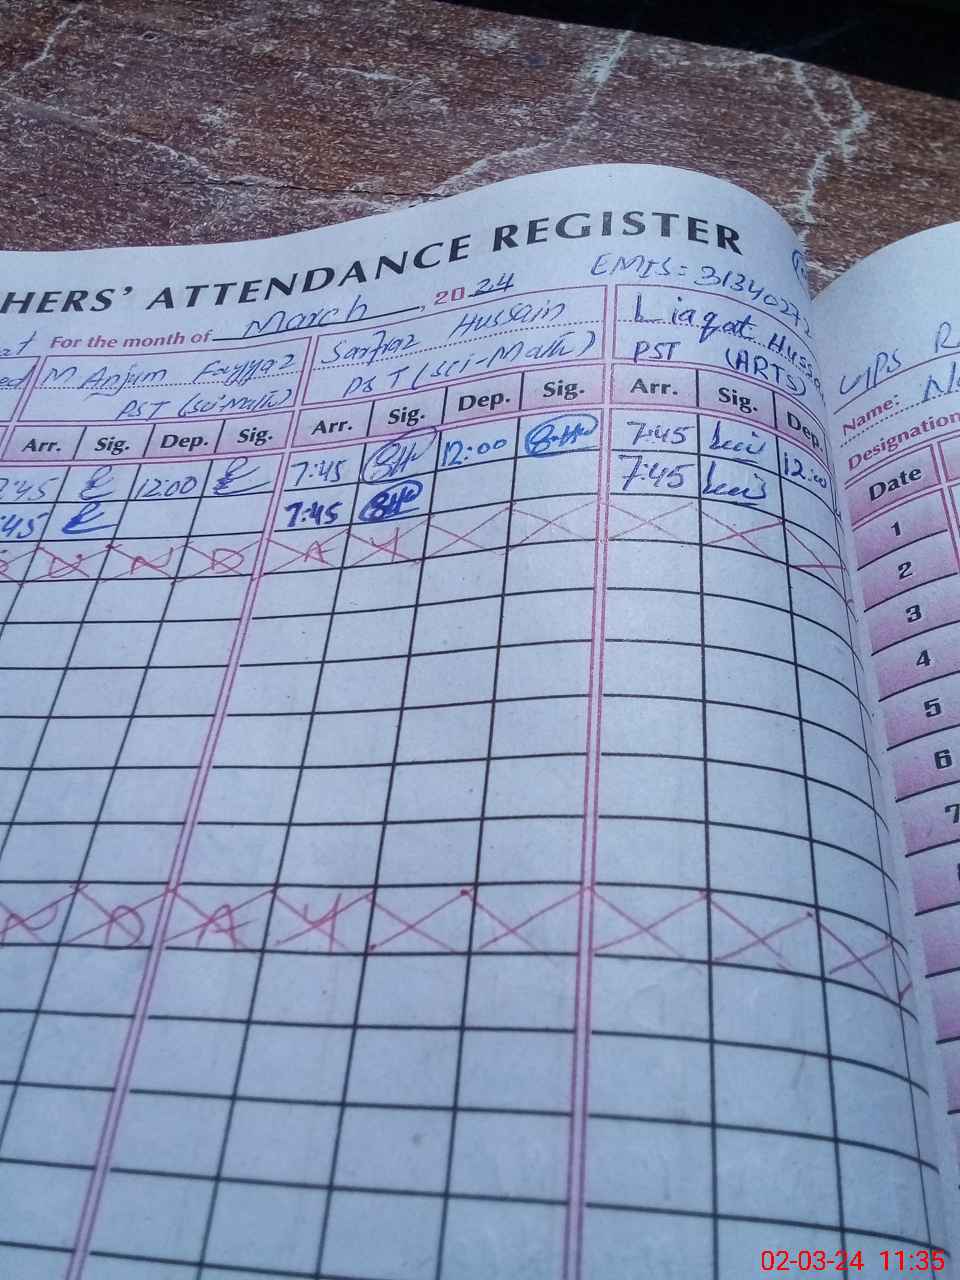 HERS' ATTENDANCE REGISTER
EMIS = 31340272
For the month of March, 2024
M Anjum Fayyaz
PST (Sci-Math)
Sarfraz Hussain
PST (Sci-Math)
Liaqat Hussa
PST (ARTS)
Arr. Sig. Dep. Sig. Arr. Sig. Dep. Sig. Arr. Sig. Dep.
7:45 12:00 7:45 12:00 7:45 12:00
:45 7:45 7:45
U N D A Y
N D A Y
GPS
Name:
Designation
Date
1
2
3
4
5
6
7
02-03-24 11:35